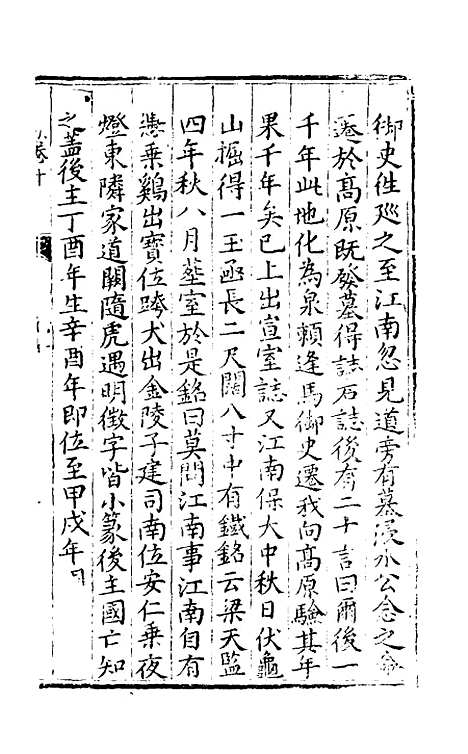 御史徃廵之至江南忽見道旁有墓浸水公念之
遷於高原既發墓得誌石誌後有二十言曰爾後一
千年此地化為泉頼逢馬御史遷我向高原驗其年
果千年矣已上出宣室誌又江南保大中秋日伏龜
山掘得一玉函長二尺闊八寸中有鐵銘云梁天監
四年秋八月塟室於是銘曰莫問江南事江南自有
慿乗鷄出寶位跨犬出金陵子建司南位安仁乗夜
燈東隣家道闕隨虎遇明徵字皆小篆後主國亡知
之蓋後主丁酉年生辛酉年即位至甲戌年
卷十